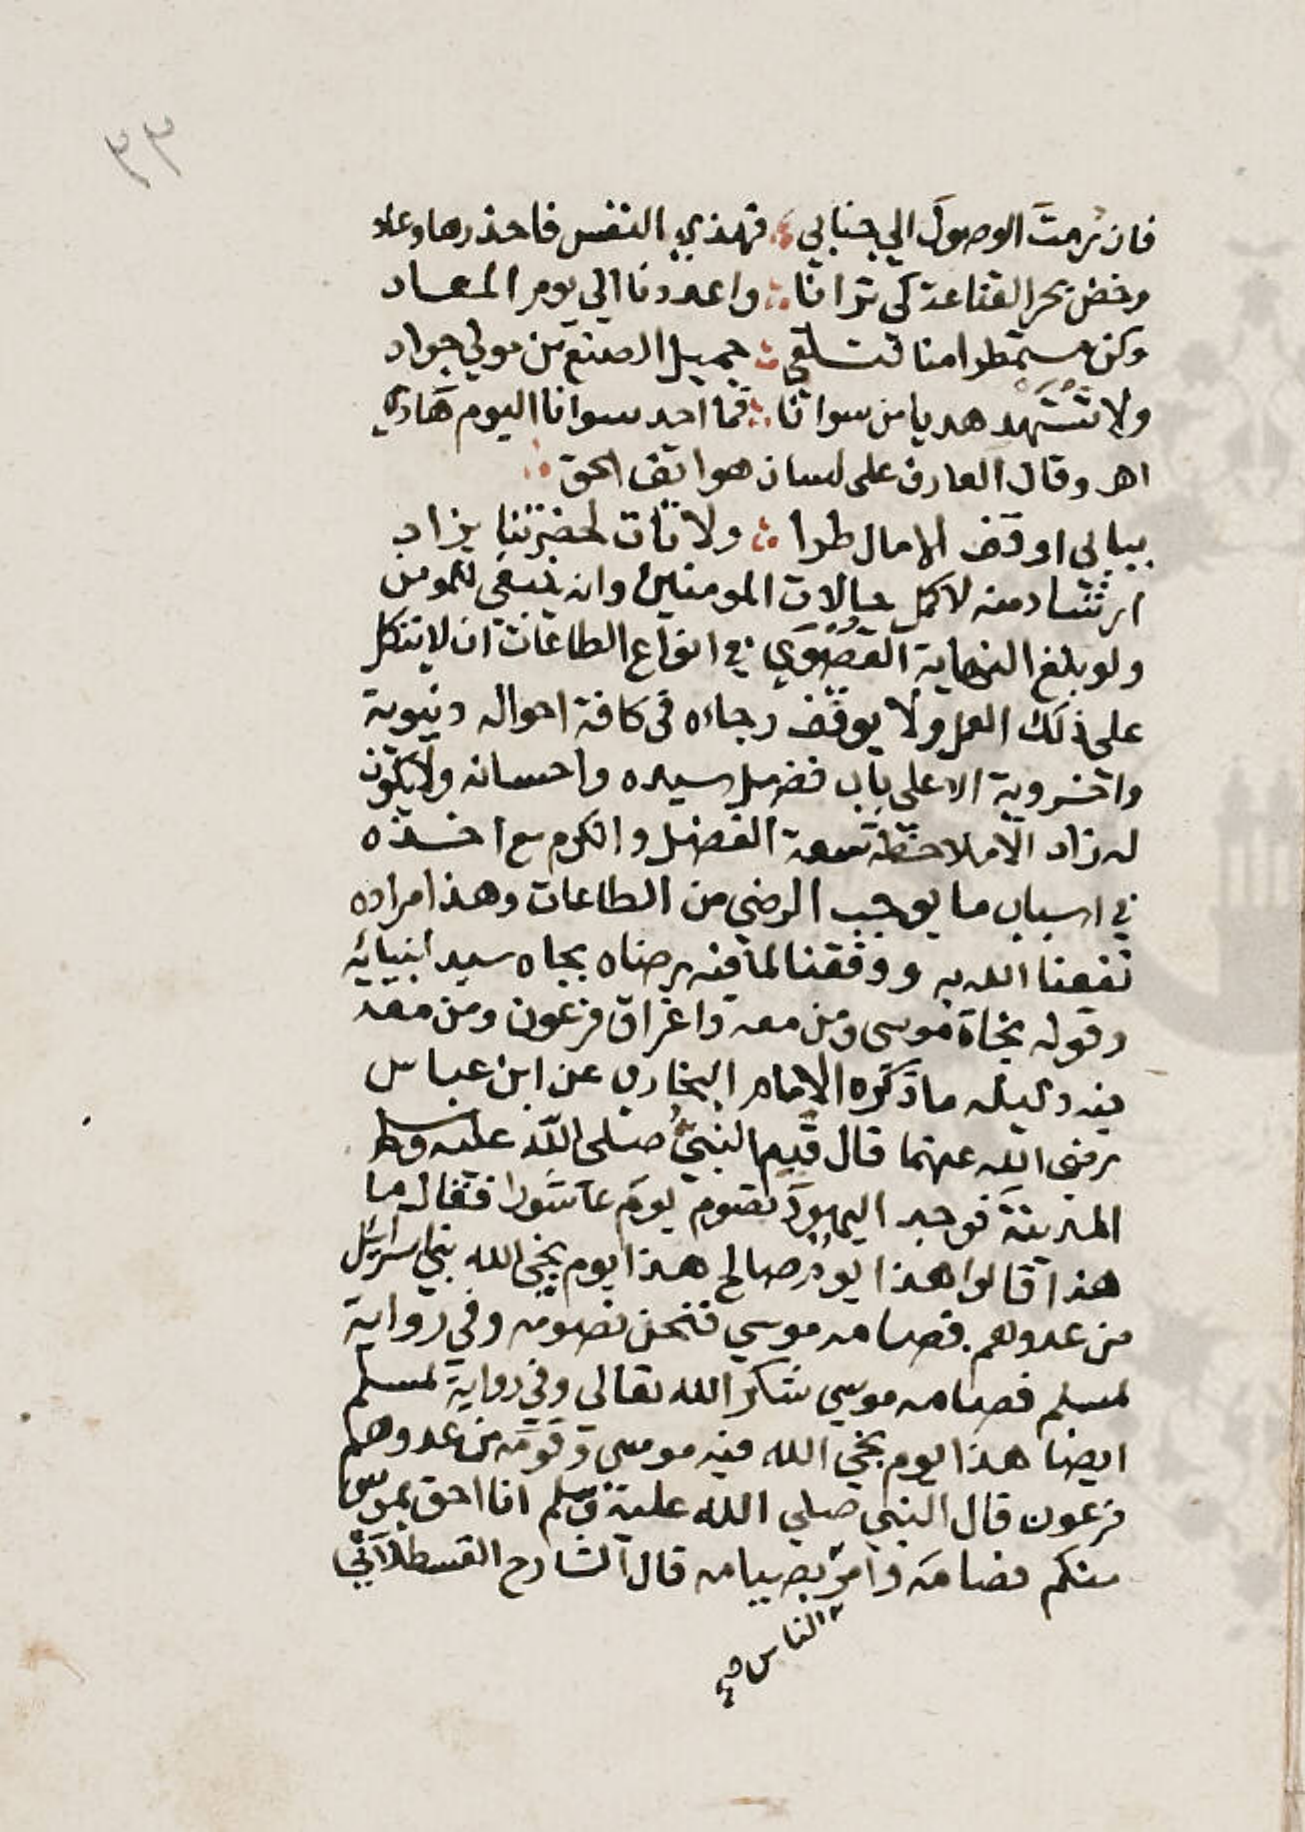 ٣٣
فان رُمتَ الوصولَ الي جنابي ؞ فهذي النفس فاحذرها وعاد
وخض بحر القناعة كي ترانا ؞ واعددنا الي يوم المعاد
وكن مستمطرا منا تتلقي ؞ جميل الصنع من مولي جواد
ولا تَسْتَهد هديا من سوانا ؞ فما احد سوانا اليوم هادي
اهر وقال العارف على لسان هواتف الحق ؞
ببابى اوقف الامال طرا ؞ ولا تات لحضرتنا بزاد
ارشاد منه لاكمل حالات المومنين وانه ينبغي للمومن
ولو بلغ النهاية القُصْوَي في انواع الطاعات ان لا يتكل
على ذلك العمل ولا يوقف رجاءه فى كافة احواله دنيوية
واخروية الا على باب فضل سيده واحسانه ولا يكون
له زاد الا ملاحظة سعة الفضل والكرم مع اخذه
في اسباب ما يوجب الرضي من الطاعات وهذا مراده
نفعنا الله به ووفقنا لما فيه رضاه بجاه سيد انبيائه
وقوله نجاة موسى ومن معه واغراق فرعون ومن معه
فيه دليله ما ذكره الامام البخاري عن ابن عباس
رضى الله عنهما قال قدِم النبيُّ صلى الله عليه وسلم
المدينةَ فوجد اليهودَ تصوم يومَ عاشورا فقال ما
هذا قالوا هذا يومٌ صالح هذا يوم نجي الله بني اسرائيل
من عدوهم فصامه موسي فنحن نصومه وفي رواية
لمسلم فصامه موسي شكر الله تعالى وفي رواية لمسلم
ايضا هذا يوم نجي الله فيه موسي وقومه من عدوهم
فرعون قال النبي صلي الله عليه وسلم انا احق بموسى
منكم فصامَه وامر بصيامه قال الشارح القسطلاني
الناس